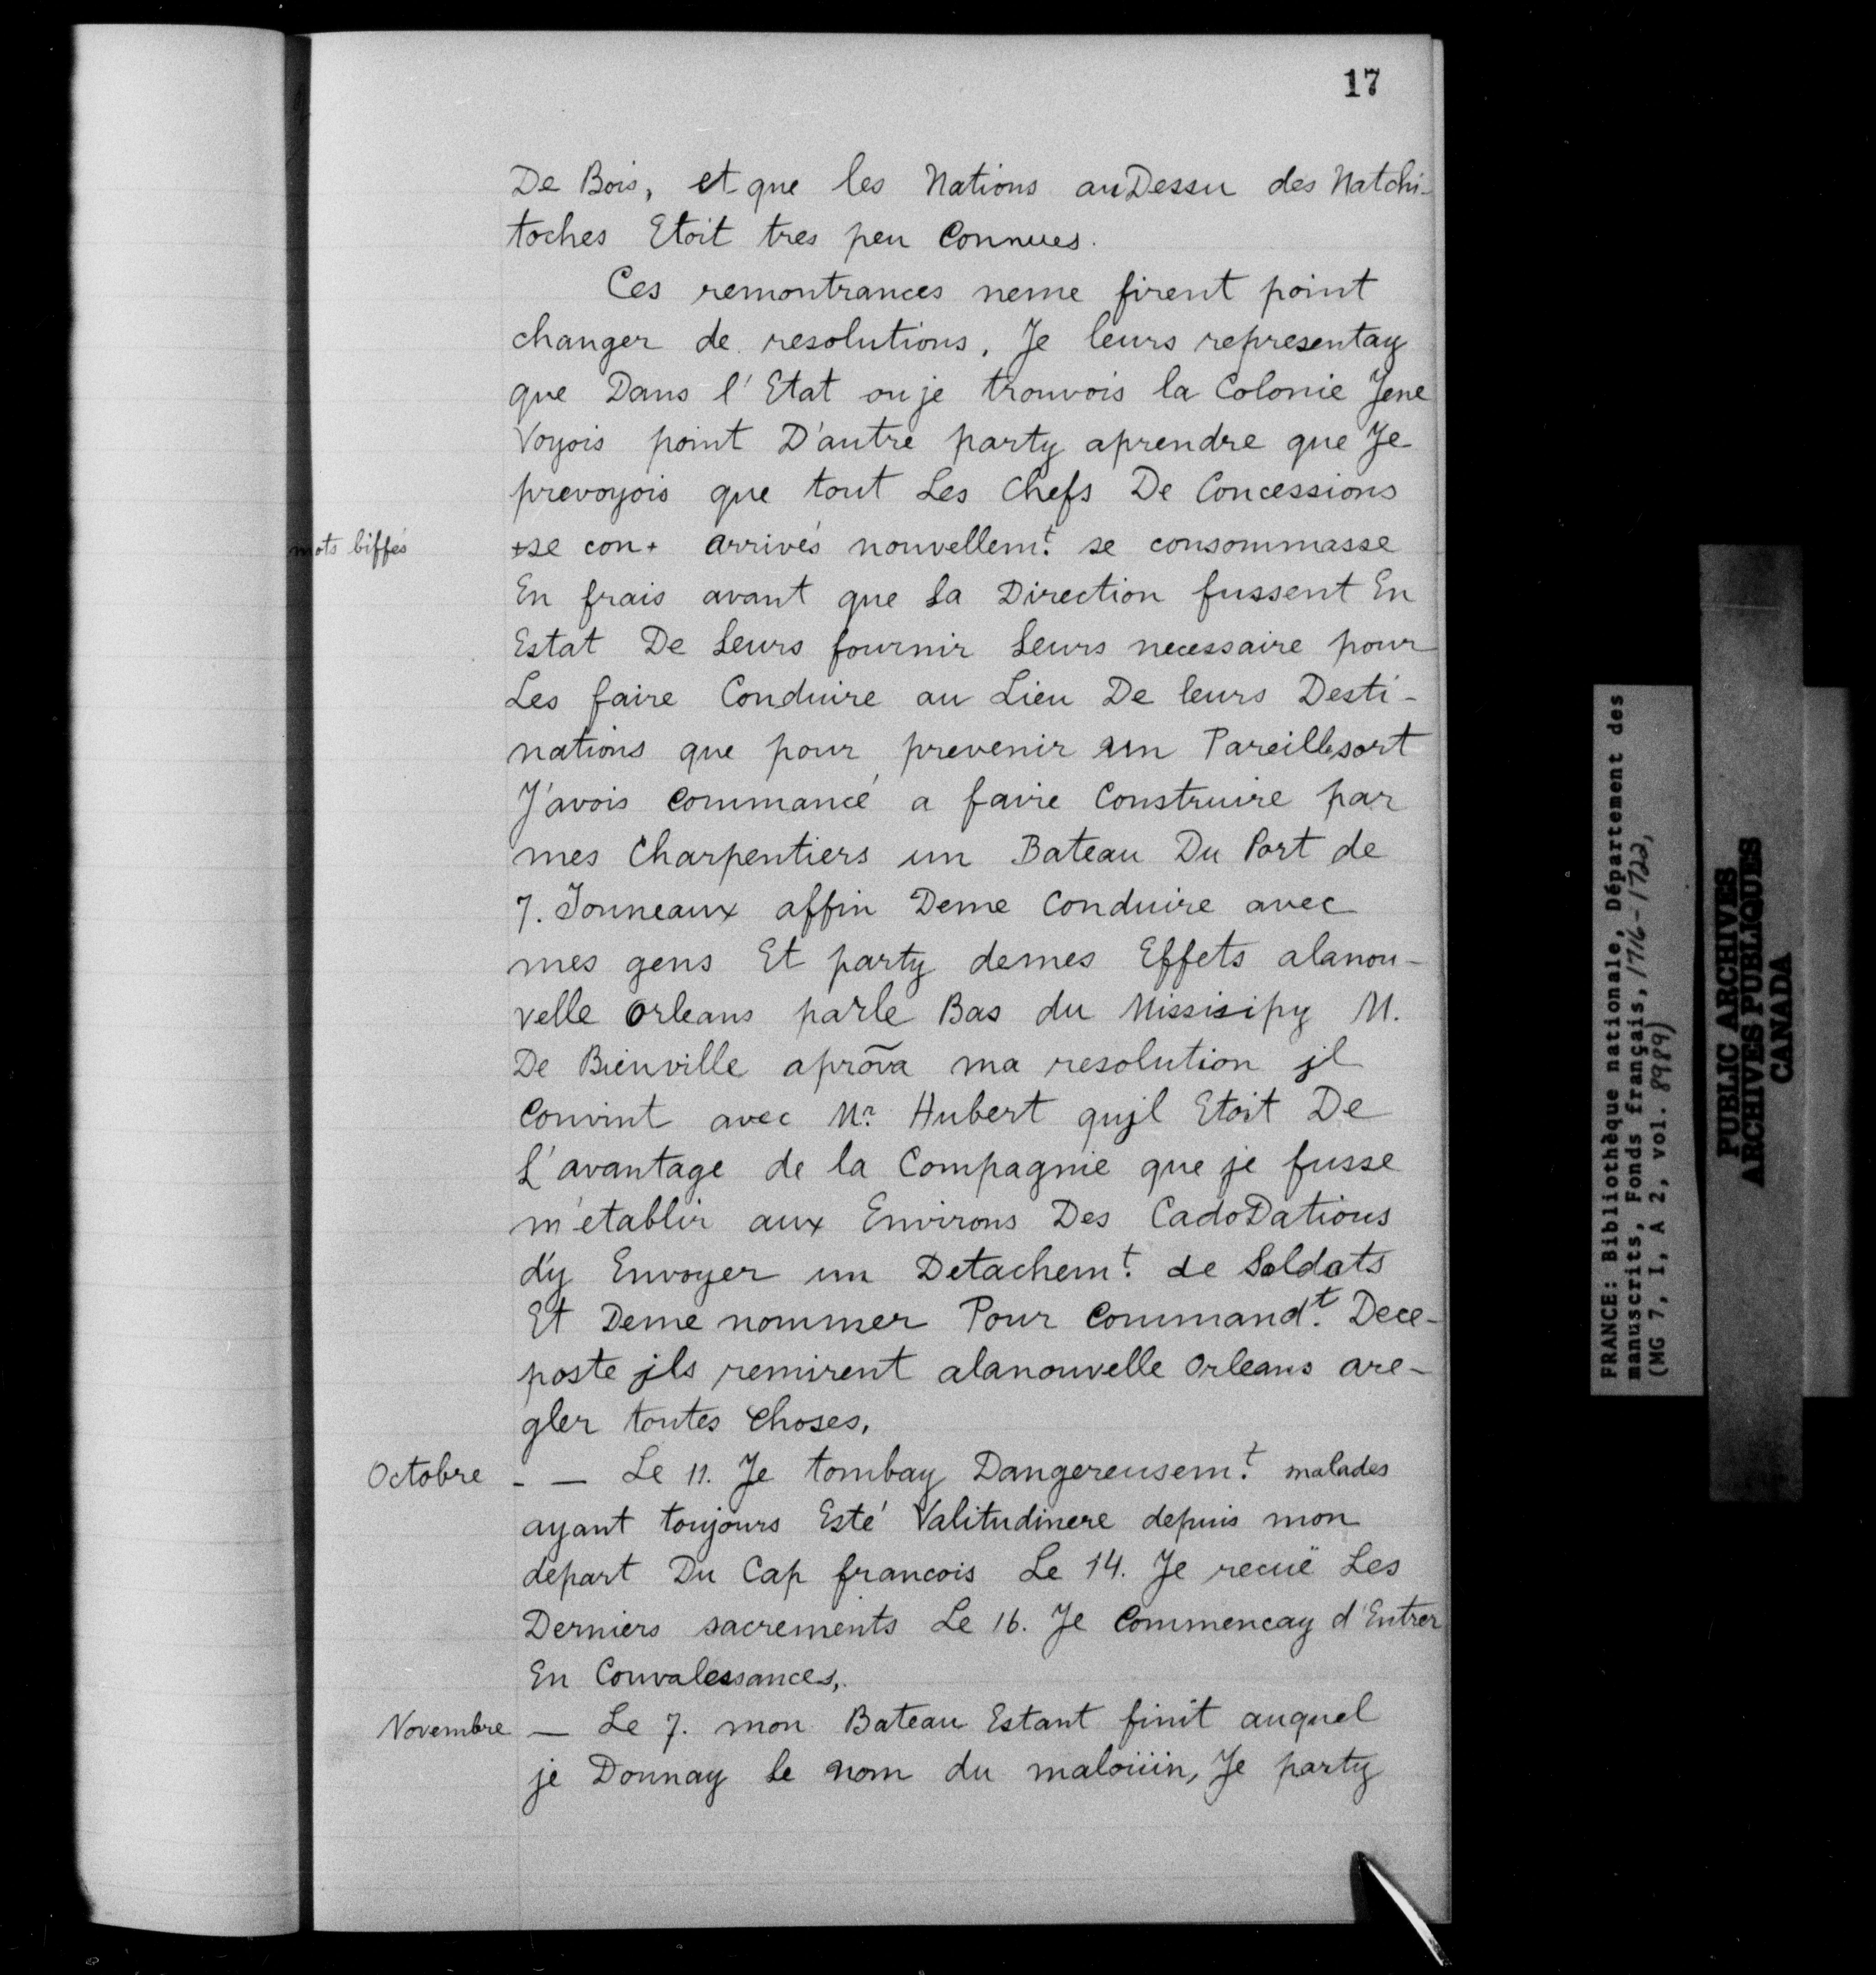 17
De Bois, et que les Nations auDessu des Natchi-
toches Etoit tres peu Connues.
Ces remontrances neme firent point
changer de resolutions. Je leurs representay
que Dans l'Etat ou je trouvois la Colonie Jene
Voyois point D'autre party aprendre que Je
prevoyois que tout Les Chefs De Concessions
mots biffés +se con+ arrivés nouvellemt. se consommasse
En frais avant que La Direction fussent En
Estat De Leurs fournir Leurs necessaire pour
Les faire Conduire au Lieu De leurs Desti-
nations que pour prevenir un Pareillesort
J'avois commancé a faire Construire par
mes Charpentiers un Bateau Du Port de
7. Tonneaux affin Deme Conduire avec
mes gens Et party demes Effets alanou-
velle Orleans parle Bas du Missisipy M.
De Bienville aprõva ma resolution jl
Convint avec Mr. Hubert qujl Etoit De
L'avantage de la Compagnie que je fusse
m'etablir aux Environs Des CadoDations
d'y Envoyer un Detachemt. de Soldats
Et Deme nommer Pour Commandt. Dece-
poste jls remirent alanouvelle Orleans are-
gler toutes Choses.
Octobre - — Le 11. Je tombay Dangereusemt. malades
ayant toujours Esté Valitudinere depuis mon
depart Du Cap francois Le 14. Je recuë Les
Derniers sacrements Le 16. Je Commencay d'Entrer
En Convalessances,.
Novembre — Le 7. mon Bateau Estant finit auquel
je Donnay le nom du maloüin, Je party
FRANCE: Bibliothèque nationale, Département des
manuscrits, Fonds français, 1716-1722,
(MG 7, I, A 2, vol. 8989)
PUBLIC ARCHIVES
ARCHIVES PUBLIQUES
CANADA